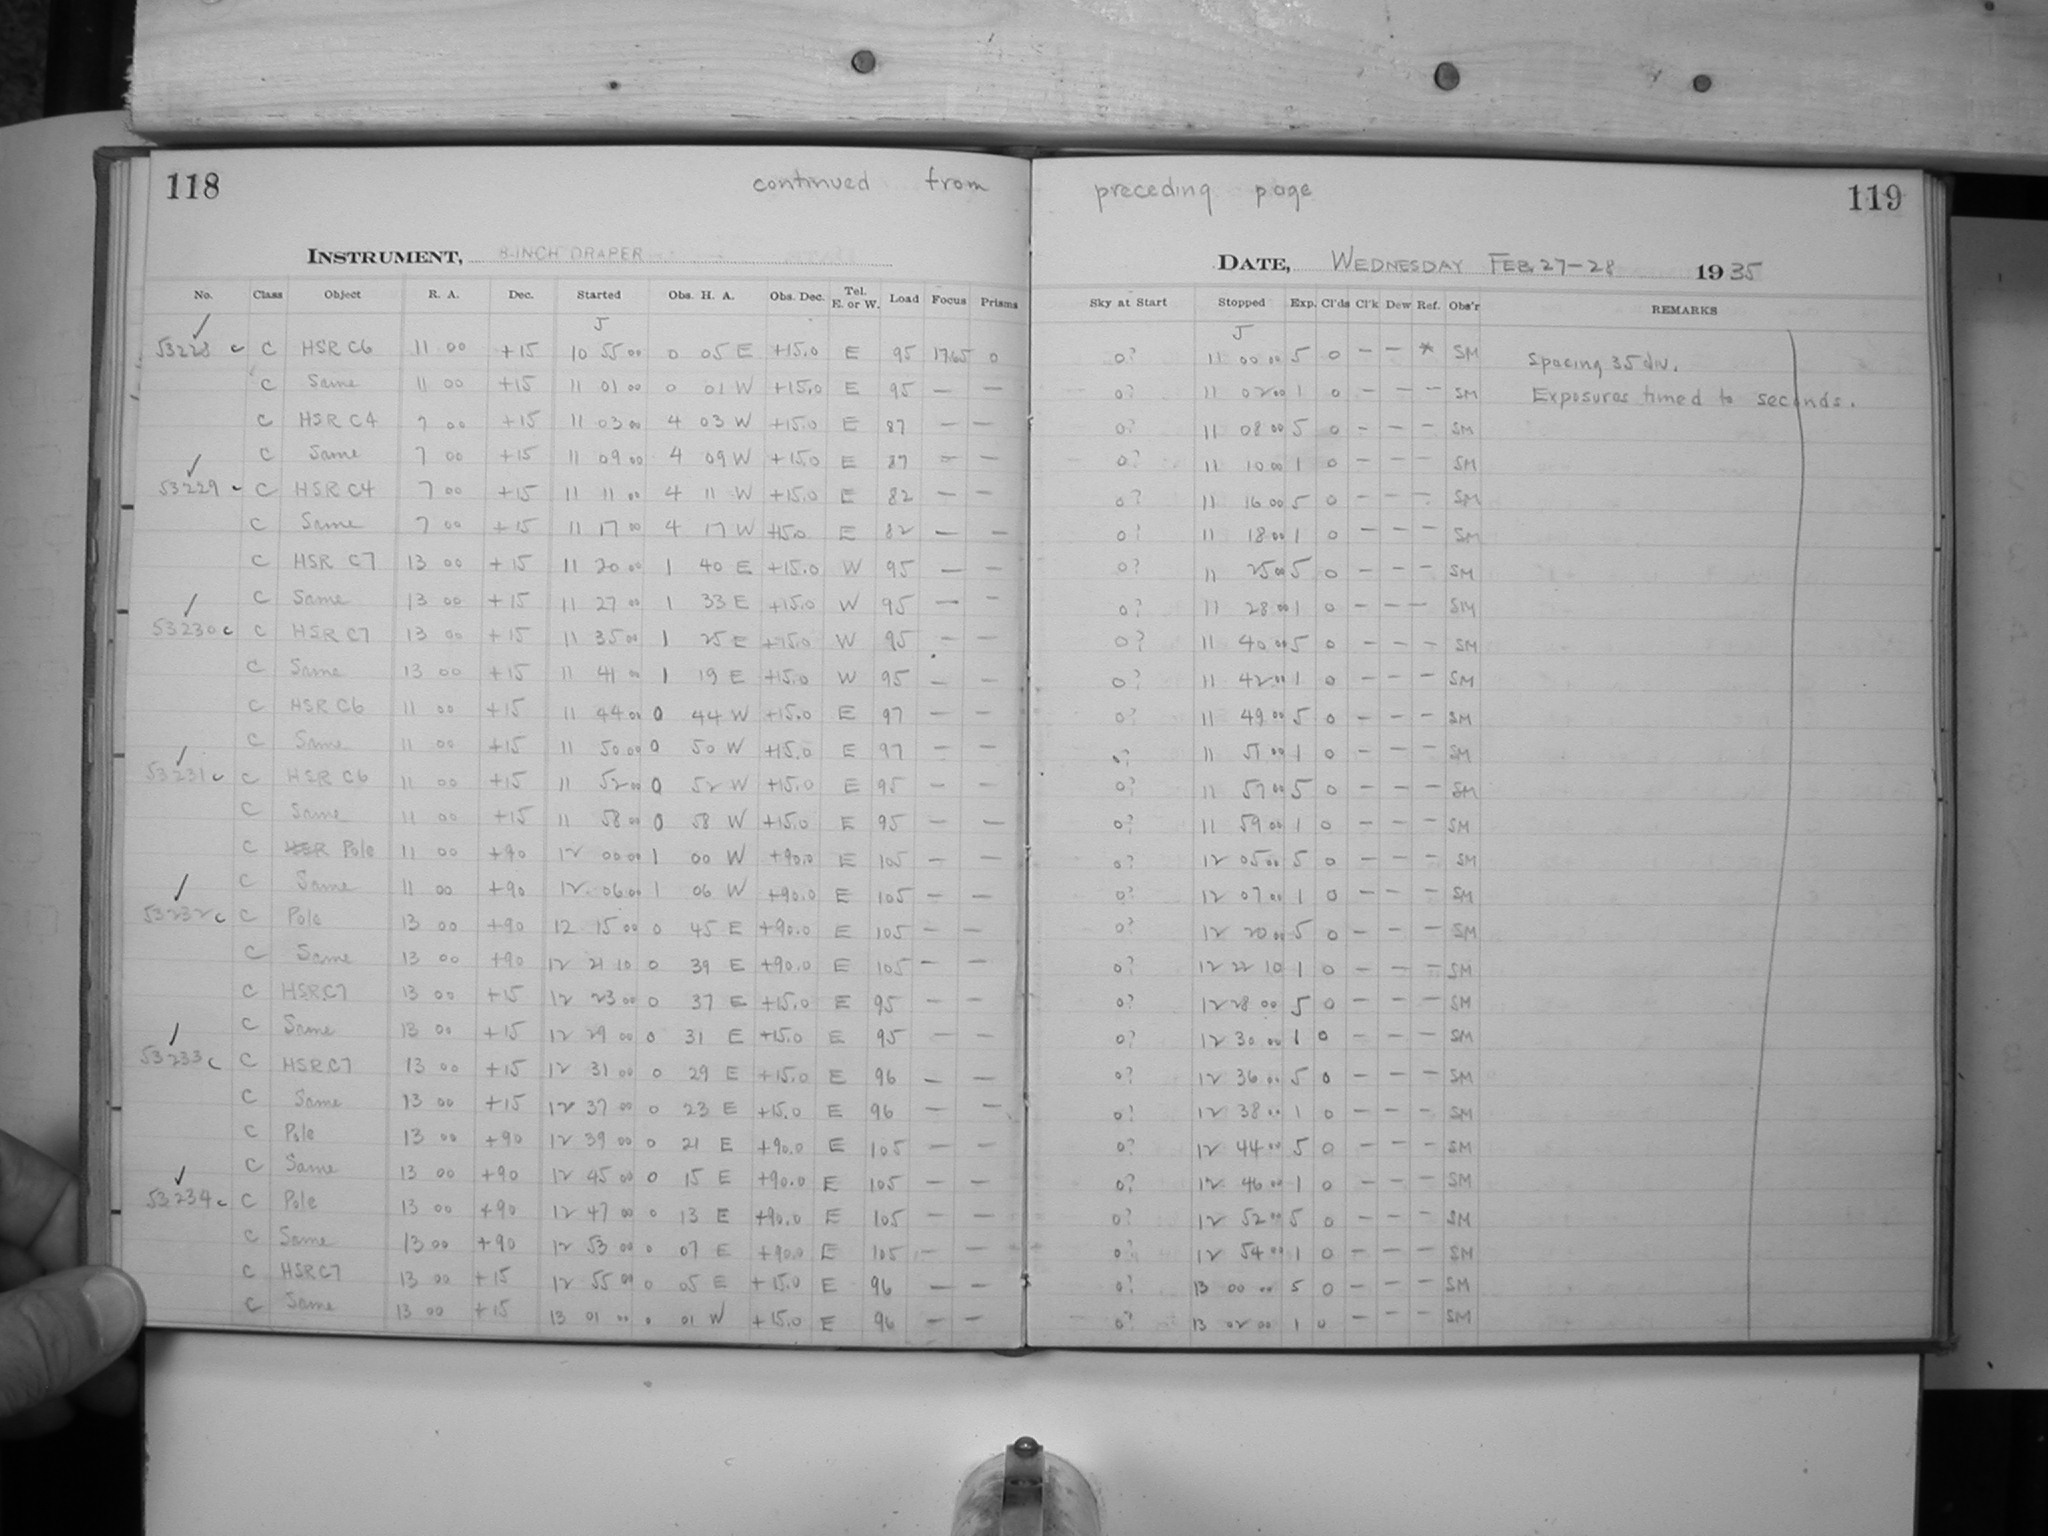 118 continued from preceding page 119
INSTRUMENT, 8-INCH DRAPER DATE, WEDNESDAY FEB. 27-28 1935
No. Class Object R. A. Dec. Started Obs. H. A. Obs. Dec. Tel. E. or W. Load Focus Prisms Sky at Start Stopped Exp. Cl'ds Cl'k Dew Ref. Obs'r REMARKS
J J
53228 c C HSR C6 11 00 +15 10 55 00 0 05 E +15.0 E 95 17.65 0 0? 11 00 00 5 0 – – * SM Spacing 35 div.
C Same 11 00 +15 11 01 00 0 01 W +15.0 E 95 – – 0? 11 02 00 1 0 – – – SM Exposures timed to seconds.
C HSR C4 7 00 +15 11 03 00 4 03 W +15.0 E 87 – – 0? 11 08 00 5 0 – – – SM
C Same 7 00 +15 11 09 00 4 09 W +15.0 E 87 – – 0? 11 10 00 1 0 – – – SM
53229 c C HSR C4 7 00 +15 11 11 00 4 11 W +15.0 E 82 – – 0? 11 16 00 5 0 – – – SM
C Same 7 00 +15 11 17 00 4 17 W +15.0 E 82 – – 0? 11 18 00 1 0 – – – SM
C HSR C7 13 00 +15 11 20 00 1 40 E +15.0 W 95 – – 0? 11 25 00 5 0 – – – SM
C Same 13 00 +15 11 27 00 1 33 E +15.0 W 95 – – 0? 11 28 00 1 0 – – – SM
53230 c C HSR C7 13 00 +15 11 35 00 1 25 E +15.0 W 95 – – 0? 11 40 00 5 0 – – – SM
C Same 13 00 +15 11 41 00 1 19 E +15.0 W 95 – – 0? 11 42 00 1 0 – – – SM
C HSR C6 11 00 +15 11 44 00 0 44 W +15.0 E 97 – – 0? 11 49 00 5 0 – – – SM
C Same 11 00 +15 11 50 00 0 50 W +15.0 E 97 – – 0? 11 51 00 1 0 – – – SM
53231 c C HSR C6 11 00 +15 11 52 00 0 52 W +15.0 E 95 – – 0? 11 57 00 5 0 – – – SM
C Same 11 00 +15 11 58 00 0 58 W +15.0 E 95 – – 0? 11 59 00 1 0 – – – SM
C Pole 11 00 +90 12 00 00 1 00 W +90.0 E 105 – – 0? 12 05 00 5 0 – – – SM
C Same 11 00 +90 12 06 00 1 06 W +90.0 E 105 – – 0? 12 07 00 1 0 – – – SM
53232 c C Pole 13 00 +90 12 15 00 0 45 E +90.0 E 105 – – 0? 12 20 00 5 0 – – – SM
C Same 13 00 +90 12 21 10 0 39 E +90.0 E 105 – – 0? 12 22 10 1 0 – – – SM
C HSR C7 13 00 +15 12 23 00 0 37 E +15.0 E 95 – – 0? 12 28 00 5 0 – – – SM
C Same 13 00 +15 12 29 00 0 31 E +15.0 E 95 – – 0? 12 30 00 1 0 – – – SM
53233 c C HSR C7 13 00 +15 12 31 00 0 29 E +15.0 E 96 – – 0? 12 36 00 5 0 – – – SM
C Same 13 00 +15 12 37 00 0 23 E +15.0 E 96 – – 0? 12 38 00 1 0 – – – SM
C Pole 13 00 +90 12 39 00 0 21 E +90.0 E 105 – – 0? 12 44 00 5 0 – – – SM
C Same 13 00 +90 12 45 00 0 15 E +90.0 E 105 – – 0? 12 46 00 1 0 – – – SM
53234 c C Pole 13 00 +90 12 47 00 0 13 E +90.0 E 105 – – 0? 12 52 00 5 0 – – – SM
C Same 13 00 +90 12 53 00 0 07 E +90.0 E 105 – – 0? 12 54 00 1 0 – – – SM
C HSR C7 13 00 +15 12 55 00 0 05 E +15.0 E 96 – – 0? 13 00 00 5 0 – – – SM
C Same 13 00 +15 13 01 00 0 01 W +15.0 E 96 – – 0? 13 02 00 1 0 – – – SM